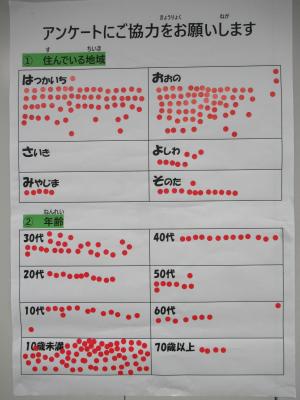 アンケートにご協力をお願いします
きょうりょく ねが
① 住んでいる地域
す ちいき
はつかいち
おおの
さいき
よしわ
みやじま
そのた
② 年齢
ねんれい
30代
40代
20代
50代
10代
60代
10歳未満
70歳以上